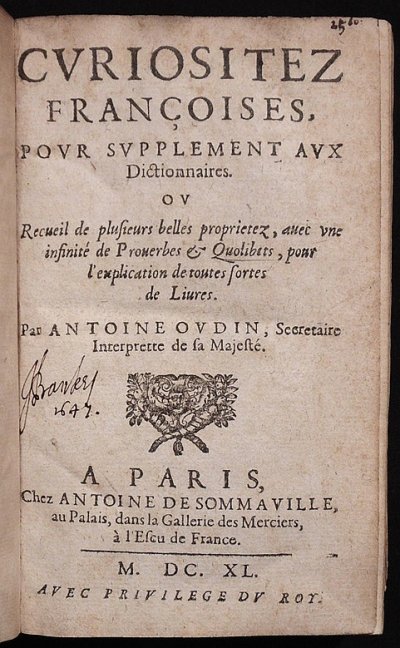 CVRIOSITEZ
FRANÇOISES,
POVR SVPPLEMENT AVX
Dictionnaires.
OV
Recueil de pluſieurs belles proprietez, auec vne
infinité de Prouerbes & Quolibets, pour
l'explication de toutes ſortes
de Liures.
Par ANTOINE OVDIN, Secretaire
Interprette de ſa Majeſté.
1647.
A PARIS,
Chez ANTOINE DE SOMMAVILLE,
au Palais, dans la Gallerie des Merciers,
à l'Eſcu de France.
M. DC. XL.
AVEC PRIVILEGE DV ROY.